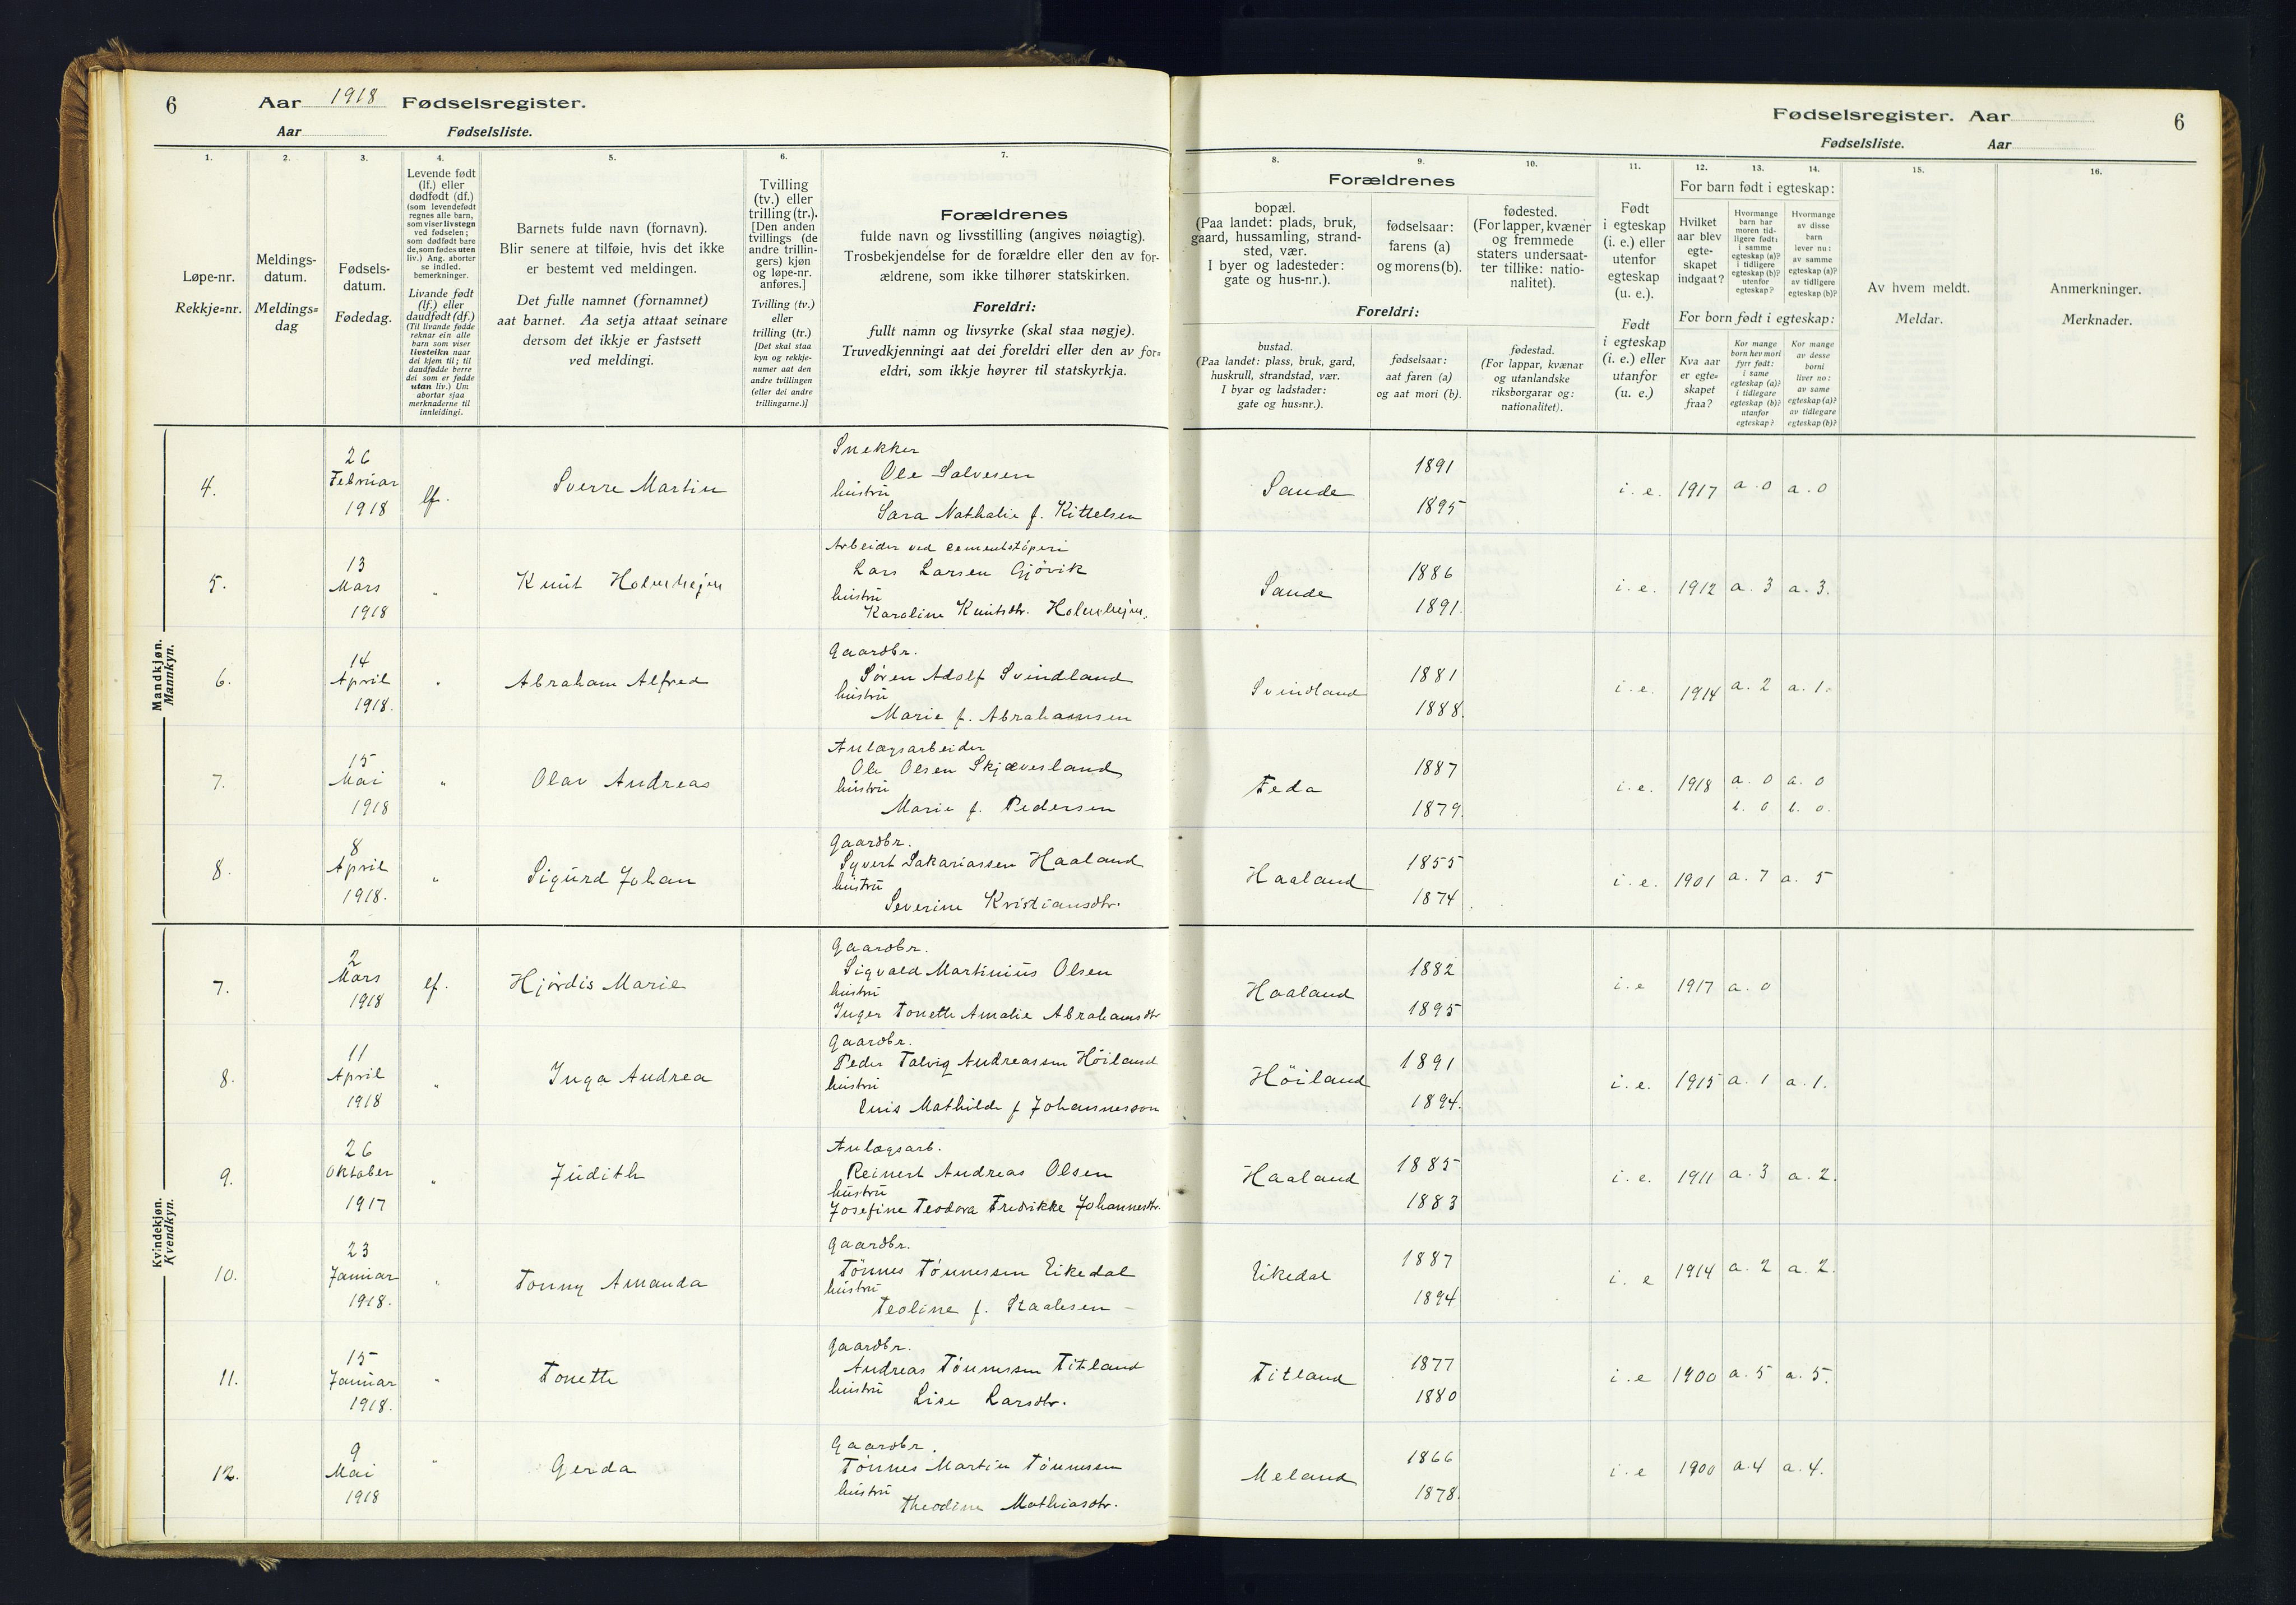 6
Aar 1918 Fødselsregister.
Aar Fødselsliste.
1.
2.
3.
4.
5.
6.
7.
Løpe-nr.
Rekkje=nr.
Meldings-
datum.
Meldings=
dag
Fødsels-
datum.
Fødedag.
Levende født
(lf.) eller
dødfødt (df.)
(som levendefødt
regnes alle barn,
som viser livstegn
ved fødselen;
som dødfødt bare
de, som fødes uten
liv.) Ang. aborter
se indled.
bemerkninger.
Livande født
(lf.) eller
daudfødt (df.)
(Til livande fødde
reknar ein alle
barn som viser
livsteikn naar
dei kjem til; til
daudfødde berre
dei som er fødde
utan liv.) Um
abortar sjaa
merknaderne til
innleidingi.
Barnets fulde navn (fornavn).
Blir senere at tilføie, hvis det ikke
er bestemt ved meldingen.
Det fulle namnet (fornamnet)
aat barnet. Aa setja attaat seinare
dersom det ikkje er fastsett
ved meldingi.
Tvilling
(tv.) eller
trilling (tr.).
[Den anden
tvillings (de
andre trillin-
gers) kjøn
og løpe-nr.
anføres.]
Tvilling (tv.)
eller
trilling (tr.)
[Det skal staa
kyn og rekkje-
numer aat den
andre tvillingen
(eller dei andre
trillingarne.)]
Forældrenes
fulde navn og livsstilling (angives nøiagtig).
Trosbekjendelse for de forældre eller den av for-
ældrene, som ikke tilhører statskirken.
Foreldri:
fullt namn og livsyrke (skal staa nøgje).
Truvedkjenningi aat dei foreldri eller den av for=
eldri, som ikkje høyrer til statskyrkja.
Mandkjøn.
Mannkyn.
4.
26
Februar
1918
lf.
Sverre Martin
Snekker
Ole Salvesen
hustru
Sara Nathalie f. Kittelsen
5.
13
Mars
1918
"
Knut Holmhejen
Arbeider ved cementstøperi
Lars Larsen Gjøvik
hustru
Karoline Knutsdtr. Holmhejen.
6.
14
April
1918.
"
Abraham Alfred
Gaardbr.
Søren Adolf Svindland
hustru
Marie f. Abrahamsen
7.
15
Mai
1918
"
Olav Andreas
Anlægsarbeider
Ole Olsen Skjævesland
hustru
Marie f. Pedersen
8.
8
April
1918.
"
Sigurd Johan
Gaardbr.
Syvert Sakariassen Haaland
hustru
Severine Kristiansdtr.
Kvindekjøn.
Kvendkyn.
7.
2
Mars
1918
lf.
Hjørdis Marie
Gaardbr.
Sigvald Martinius Olsen
hustru
Inger Tonette Amalie Abrahamsdtr
8.
11
April
1918
"
Inga Andrea
Gaardbr.
Peder Talvig Andreassen Höiland
hustru
Enis Mathilde f Johannesson
9.
26
Oktober
1917
"
Judith
Anlægsarb.
Reinert Andreas Olsen
hustru
Josefine Teodora Fredrikke Johannesdtr.
10.
23
Januar
1918.
"
Tonny Amanda
Gaardbr.
Tönnes Tönnessen Eikedal
hustru
Teoline f. Staalesen
11.
15
Januar
1918.
"
Tonette
Gaardbr.
Andreas Tönnessen Titland
hustru
Lise Larsdtr.
12.
9
Mai
1918
"
Gerda
Gaardbr.
Tönnes Martin Tönnesen
hustru
Theodine Mathiasdtr.
Fødselsregister. Aar
6
Fødselsliste. Aar
8.
9.
10.
11.
12.
13.
14.
15.
16.
Forældrenes
bopæl.
(Paa landet: plads, bruk,
gaard, hussamling, strand-
sted, vær.
I byer og ladesteder:
gate og hus-nr.).
fødselsaar:
farens (a)
og morens (b).
fødested.
(For lapper, kvæner
og fremmede
staters undersaat-
ter tillike: natio-
nalitet).
Foreldri:
bustad.
(Paa landet: plass, bruk, gard,
huskrull, strandstad, vær.
I byar og ladstader:
gate og hus=nr.).
fødselsaar:
aat faren (a)
og aat mori (b).
fødestad.
(For lappar, kvænar
og utanlandske
riksborgarar og:
nationalitet).
Født
i egteskap
(i. e.) eller
utenfor
egteskap
(u. e.).
Født
i egteskap
(i. e.) eller
utanfor
(u. e.)
For barn født i egteskap:
Hvilket
aar blev
egte-
skapet
indgaat?
Hvormange
barn har
moren tid-
ligere født:
i samme
egteskap (a)?
i tidligere
egteskap (b)?
utenfor
egteskap?
Hvormange
av disse
barn
lever nu:
av samme
egteskap (a)?
av tidligere
egteskap (b)?
For born født i egteskap:
Kva aar
er egte=
skapet
fraa?
Kor mange
born hev mori
fyrr født:
i same
egteskap (a)?
i tidlegare
egteskap (b)?
utanfor
egteskap?
Kor mange
av desse
borni
liver no:
av same
egteskap (a)?
av tidlegare
egteskap (b)?
Av hvem meldt.
Meldar.
Anmerkninger.
Merknader.
Sande
1891
1895
i. e. 1917 a. 0 a. 0
Sande
1886
1891.
i. e. 1912 a. 3 a. 3.
Svindland
1881
1888.
i. e. 1914 a. 2 a. 1.
Feda
1887
1879.
i. e. 1918 a. 0 a. 0
b. 0 b. 0.
Haaland
1855
1874
i. e. 1901 a. 7 a. 5
Haaland
1882
1895
i. e 1917 a. 0
Höiland
1891
1894.
i. e. 1915 a. 1 a. 1.
Haaland
1885
1883
i. e. 1911 a. 3 a. 2.
Eikedal
1887
1894
i. e 1914 a. 2 a. 2.
Titland
1877
1880
i. e 1900 a. 5 a. 5.
Meland
1866
1878.
i. e 1900 a. 4 a. 4.